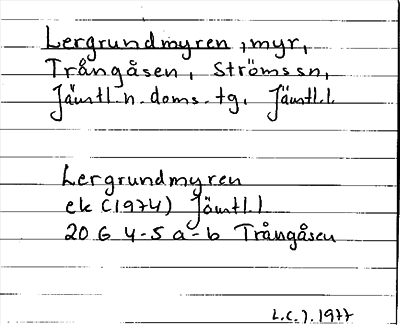 Lergrundmyren, myr,
Trångåsen, Ströms sn,
Jämtl. n. doms. tg. Jämtl. l.
Lergrundmyren
ek (1974) Jämtl. l
20 G 4-5 a-b Trångåsen
L.C.J. 1977